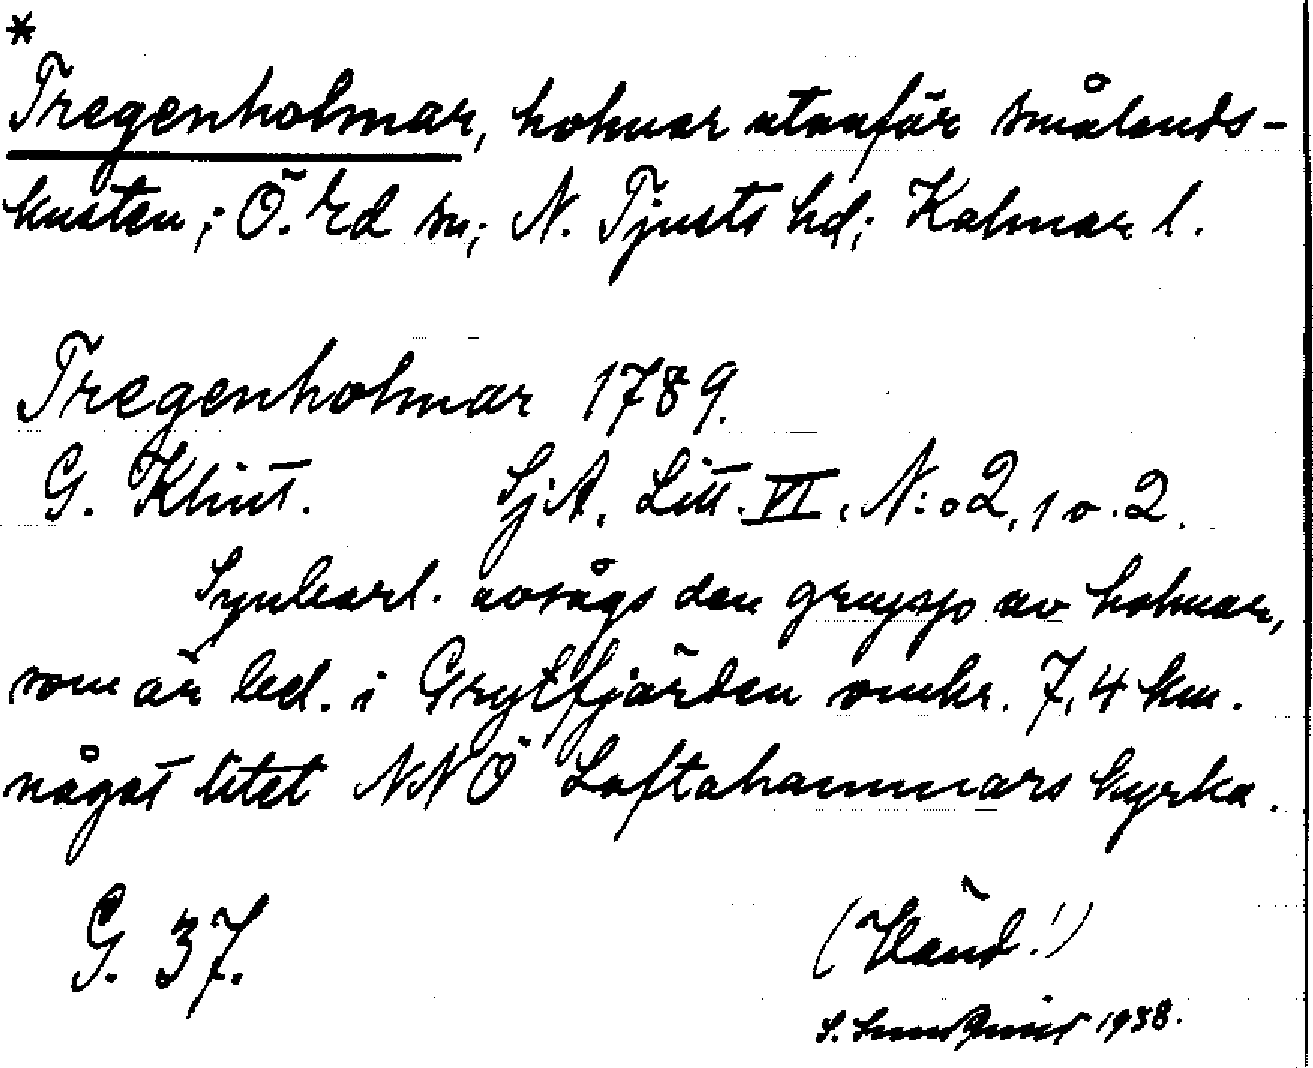 *
Tregenholmar, holmar utanför smålands-
kusten; Ö. Ed sn; N. Tjusts hd; Kalmar l.
Tregenholmar 1789.
G. Klint. SjA. Litt. VI. N:o 2, 1 o. 2.
Synbarl. avsågs den grupp av holmar,
som är bel. i Grytfjärden omkr. 7,4 km.
något litet NNÖ Loftahammars kyrka.
G. 37. (Vänd!)
S. 1938.